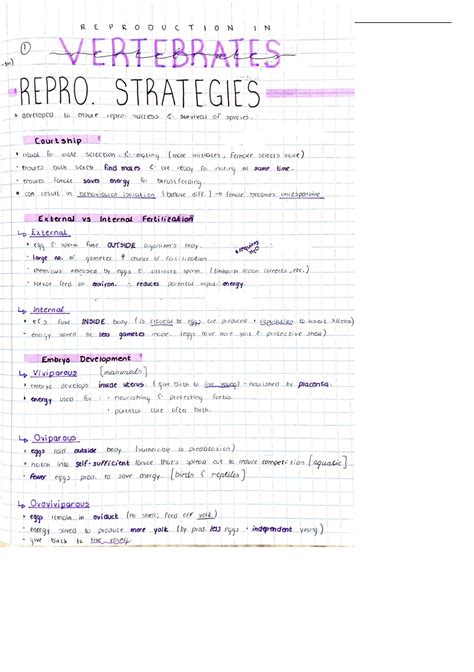 REPRODUCTION IN
①
VERTEBRATES
REPRO. STRATEGIES
developed to ensure repro. success & survival of species.
Courtship
ritual for mate selection & mating (male initiates, female selects mate)
ensures both sexes find mates & are ready for mating at same time.
ensures female saves energy for breastfeeding.
can result in behavioural isolation (behave diff.) → female becomes unresponsive
External vs Internal Fertilization
↳ External
egg & sperm fuse OUTSIDE organism's body.
requires H₂O
large no. of gametes ↑ chance of fertilization.
chemicals released by eggs & attracts sperm. (timing, ocean currents, etc.)
larvae feed on environ. reduces parental input energy.
↳ Internal
fuse INSIDE body (is eggs are produced + to insert)
energy saved bc less gametes made. (eggs have more yolk & protective shell)
Embryo Development
↳ Viviparous [mammals]
embryo develops inside uterus. (give birth to live young) - nourished by placenta.
energy used for: nourishing & protecting foetus
parental care after birth.
↳ Oviparous
eggs laid outside body (vulnerable to predation)
hatch into self-sufficient larvae that's spread out to reduce competition [aquatic]
fewer eggs prod. to save energy. [birds & reptiles]
↳ Ovoviviparous
eggs remain in oviduct (no shell; feed off yolk)
energy used to produce more yolk (by prod. less eggs + independent young)
give birth to live young